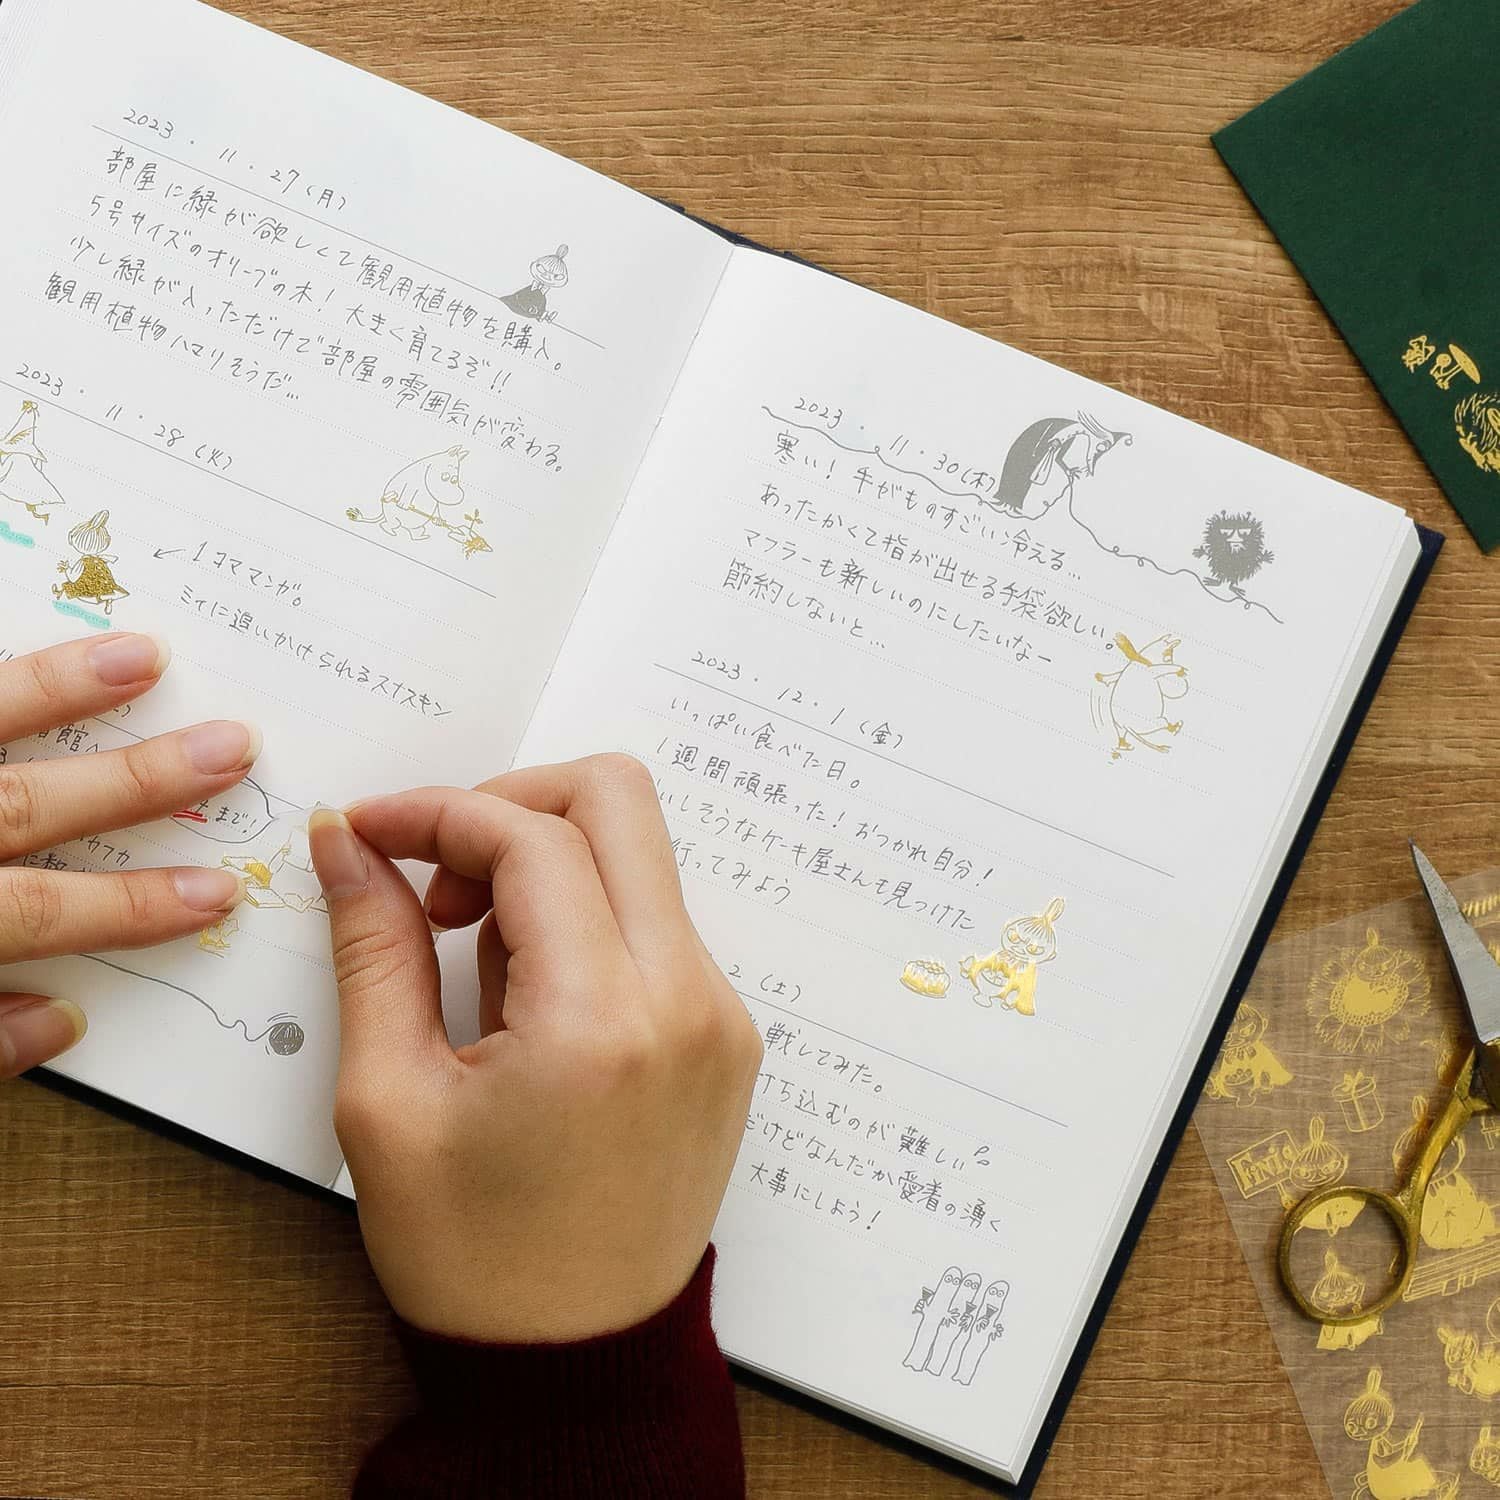 2023 . 11 . 27 (月)
部屋に緑が欲しくて観用植物を購入。
5号サイズのオリーブの木! 大きく育てるぞ!!
少し緑が入っただけで部屋の雰囲気が変わる。
観用植物ハマりそうだ…
2023 . 11 . 28 (火)
↙ 1コママンガ。
ミイに追いかけられるスナスキン
館へ
土まで!
カフカ
に
2023 . 11 . 30 (木)
寒い! 手がものすごい冷える…
あったかくて指が出せる手袋欲しい。
マフラーも新しいのにしたいなー
節約しないと…
2023 . 12 . 1 (金)
いっぱい食べた日。
1週間頑張った! おつかれ自分!
いしそうなケーキ屋さんも見つけた
行ってみよう
2 (土)
戦してみた。
打ち込むのが難しい
だけどなんだか愛着の湧く
大事にしよう!
FINIO